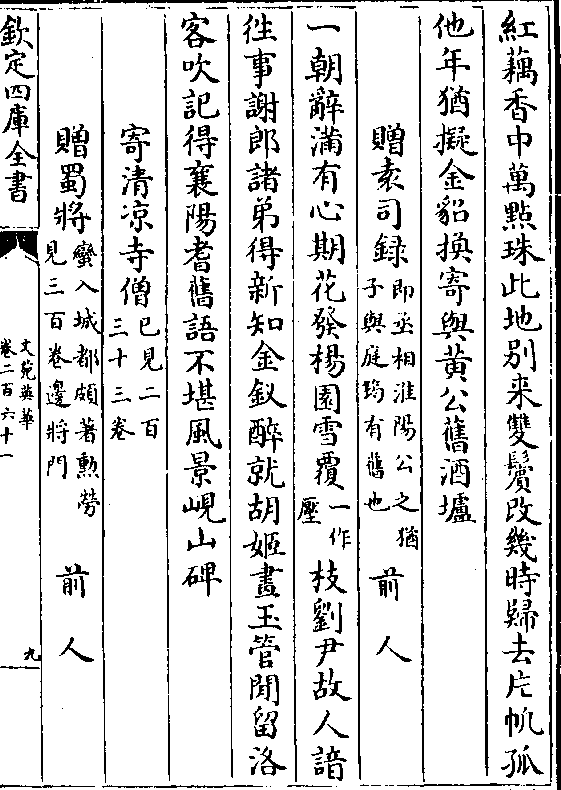 紅藕香中萬點珠此地别来雙鬢改幾時歸去片帆孤
他年猶擬金貂換寄與黃公舊酒壚
贈袁司録即丞相淮陽公之猶子與庭筠有舊也 前人
一朝辭滿有心期花發楊園雪覆一作壓枝劉尹故人諳
徃事謝郎諸弟得新知金釵醉就胡姬畫玉管閒留洛
客吹記得襄陽耆舊語不堪風景峴山碑
寄清凉寺僧已見二百三十三卷
贈蜀將蠻入城都頗著勲勞見三百卷邊將門 前人
欽定四庫全書
文苑英華
卷二百六十一
九